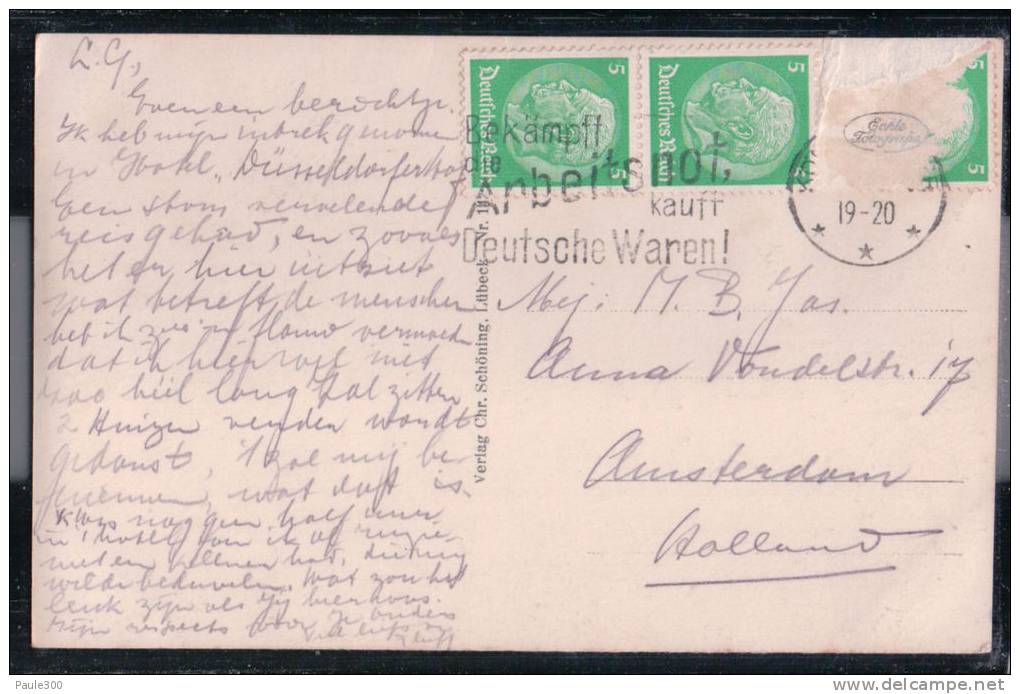 L. G.,
Even een berichtje.
Ik heb mijn intrek genomen
in Hotel "Düsseldorferhof
Een vervelende
reis gehad, en zovaes
het er hier uitziet
wat betreft de menschen
heb ik flauw vermoeden
dat ik hier wel niet
zoo héél lang zal zitten
2 Huizen verder wordt
gedanst, ik zal mij be-
noemen, wat dat is.
Ik was nog geen half uur
in 't hotel, toen ik al ruzie
met een kellner had, die mij
wilde beduvelen. Wat zou het
leuk zijn als jij hier was.
Mijn respects voor je ouders
Deutsches Reich 5
5 Deutsches Reich 5
5 5
Echte
Fotografie
Bekämpft
die
Arbeitsnot,
kauft
Deutsche Waren!
19-20
Verlag Chr. Schöning, Lübeck Nr. 1
Mej. M. B. Jas.
Anna Vondelstr. 17
Amsterdam
Holland
Paule300
delcampe.net